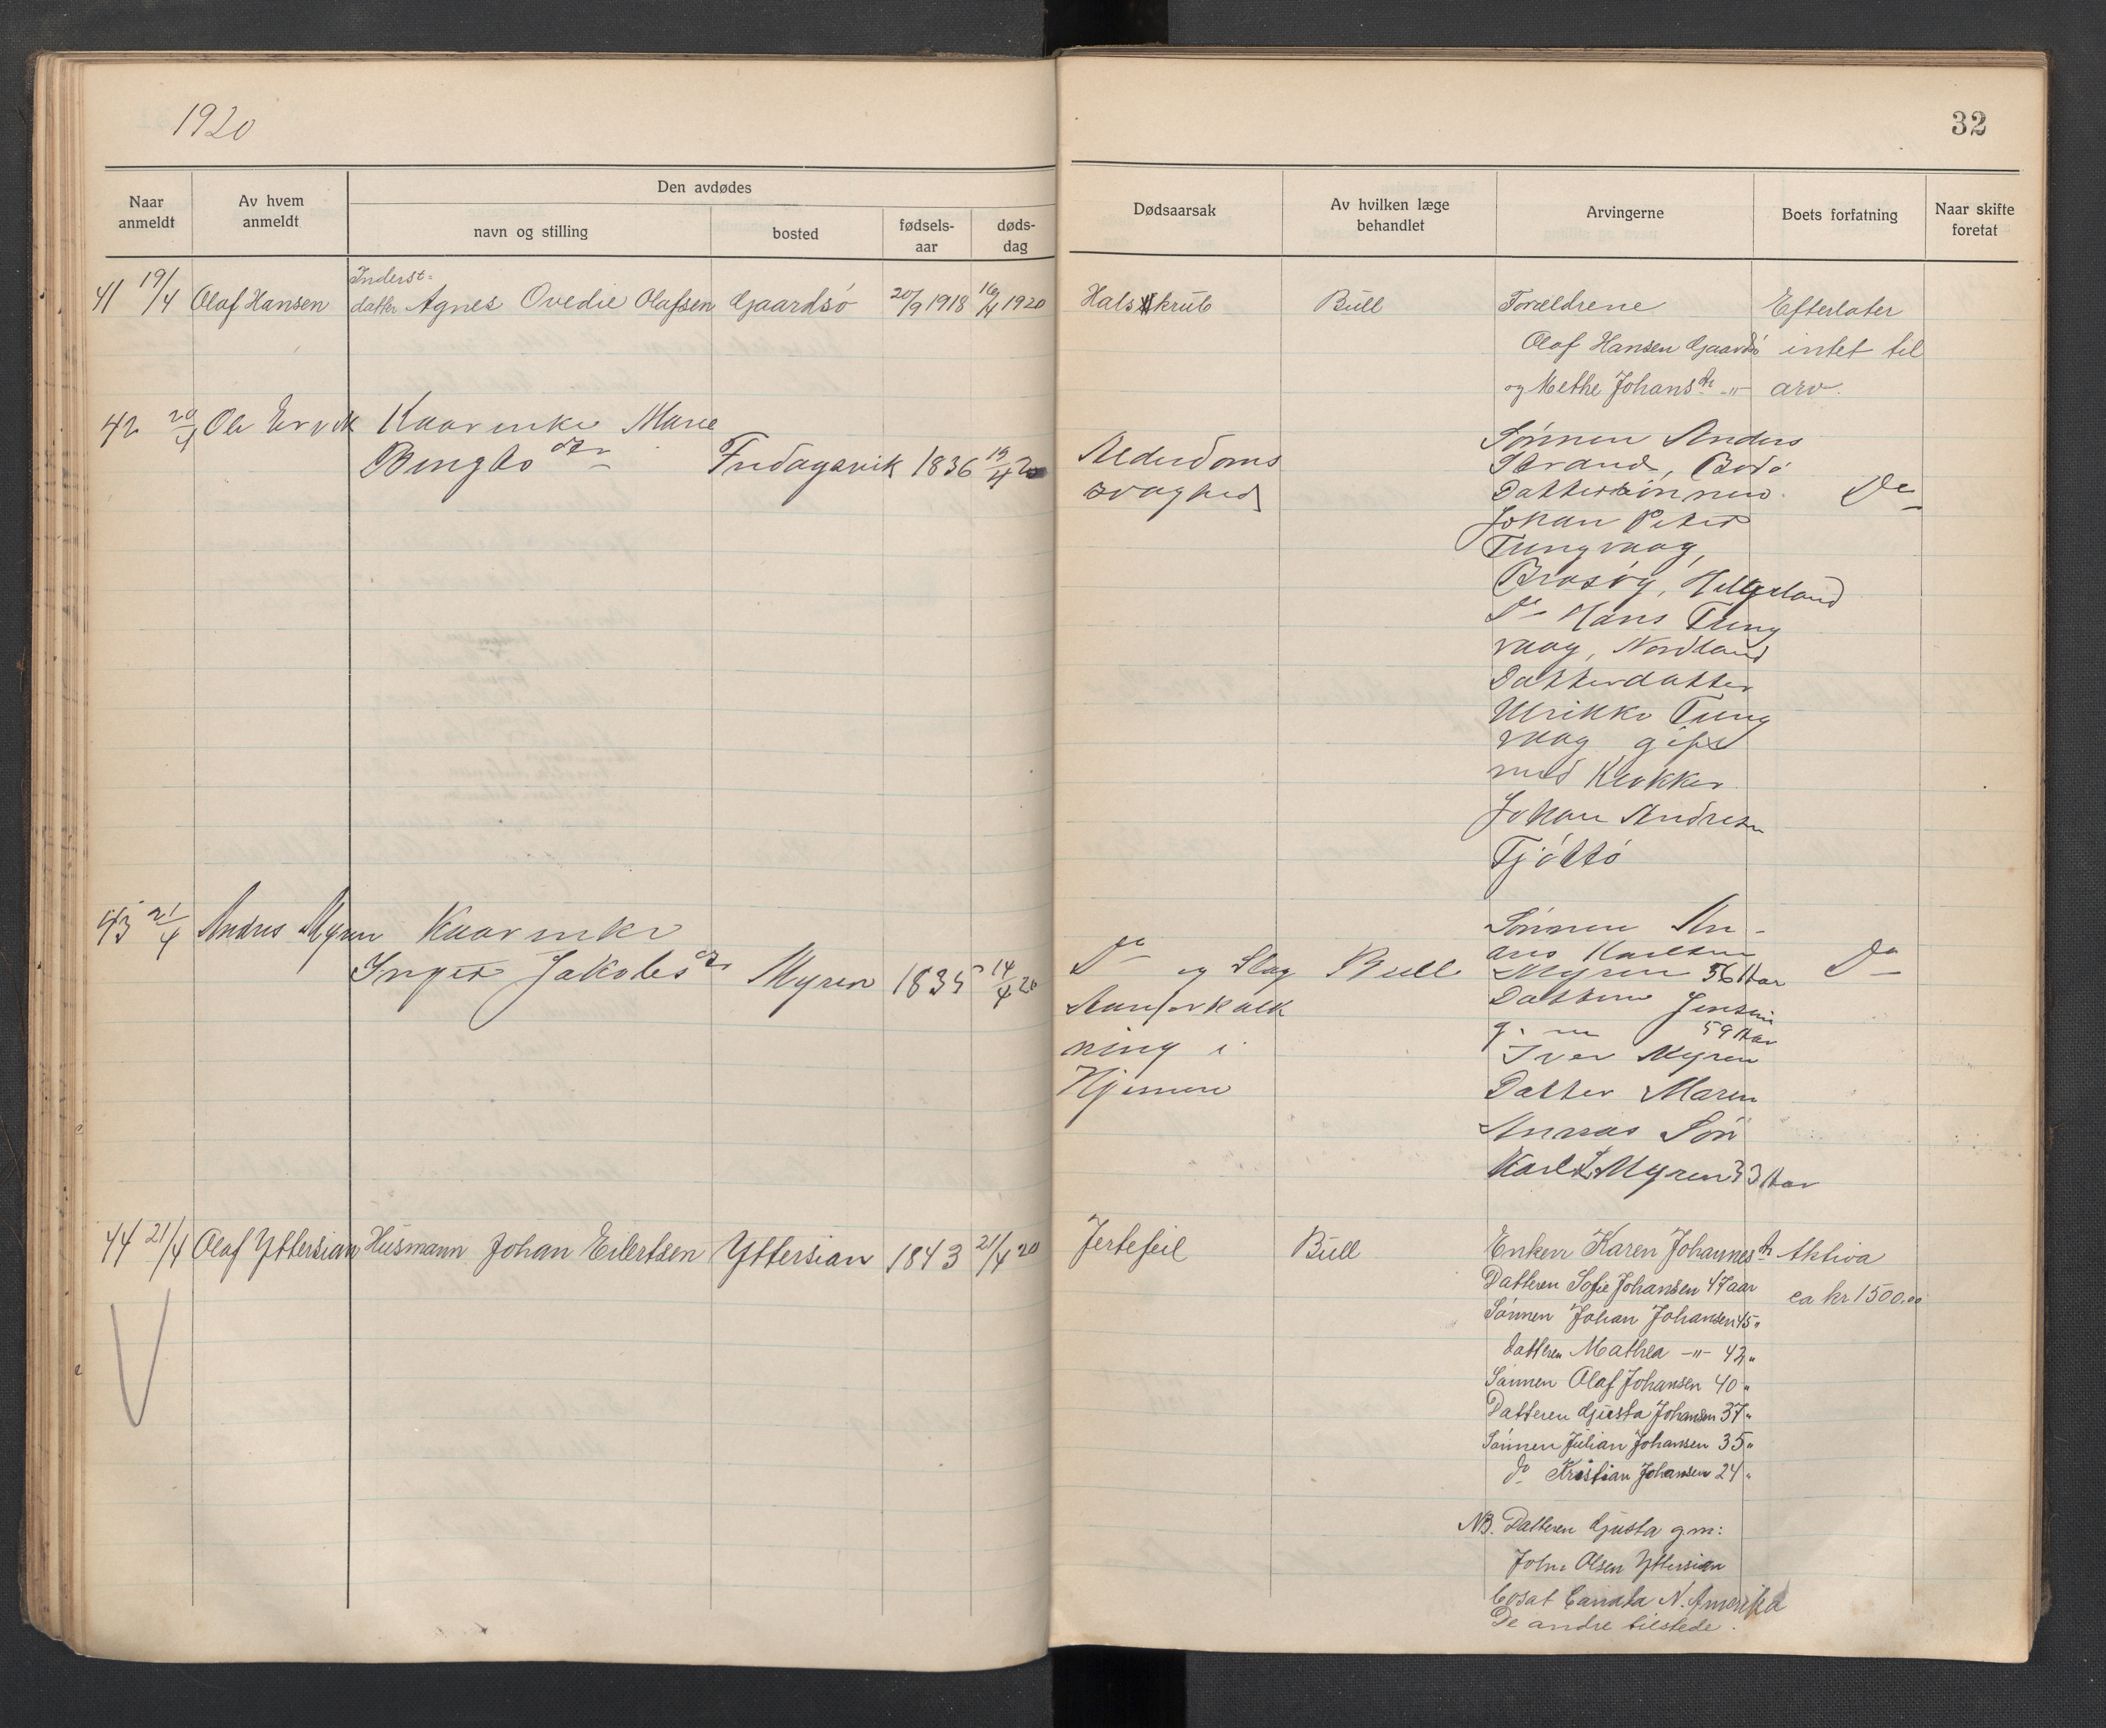 1920
32
Naar anmeldt
Av hvem anmeldt
Den avdødes
navn og stilling
bosted
fødsels-aar
døds-dag
Dødsaarsak
Av hvilken læge behandlet
Arvingerne
Boets forfatning
Naar skifte foretat
Inderst-
41 19/4 Olaf Hansen datter Agnes Ovedie Olafsen Gaardsø 20/9 1918 16/4 1920 Halskrub Bull Forældrene Efterlater
Olaf Hansen Gaardsø intet til
og Methe Johansdtr -"- arv.
42 20/4 Ole Ervik Kaarenke Marie
Bengtsdtr Fredagsvik 1836 19/4 20 Alderdoms
svaghed
Sønnen Anders
Strand, Bodø
Dattersønnen Do
Johan Peter
Tungvaag,
Brasøy, Helgeland
Do Hans Tung
vaag, Nordland
Datterdatter
Ulrikke Tung
vaag gift
med Klokker
Johan Andresen
Tjøttø
43 21/4 Andres Myren Kaarenke
Inger Jakobsdtr Myren 1835 14/4 20 Do og Slag Bull
Aareforkalk
ning i
Hjernen
Sønnen An-
dres Karlsen
Myren 56 Aar Do
Datteren Jensine
g. m 59 Aar
Iver Myren
Datter Maren
Annas Søn
Karl Myren 33 Aar
44 21/4 Olaf Yttersian Husmann Johan Eilertsen Yttersian 1843 21/4 20 Jertefeil Bull Enken Karen Johannesdtr Aktiva
Datteren Sofie Johansen 47 aar ca kr 1500.00
Sønnen Johan Johansen 45 "
Datteren Mathea -"- 42 "
Sønnen Olaf Johansen 40 "
Datteren Gjusta Johansen 37 "
Sønnen Julian Johansen 35 "
do Kristian Johansen 24 "
NB. Datteren Gjusta g.m:
John Olsen Yttersian
bosat Canada N. Amerika
De andre tilstede.